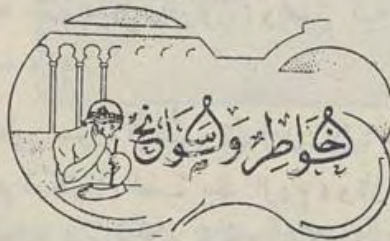 خَواطِر وَسَوَانح